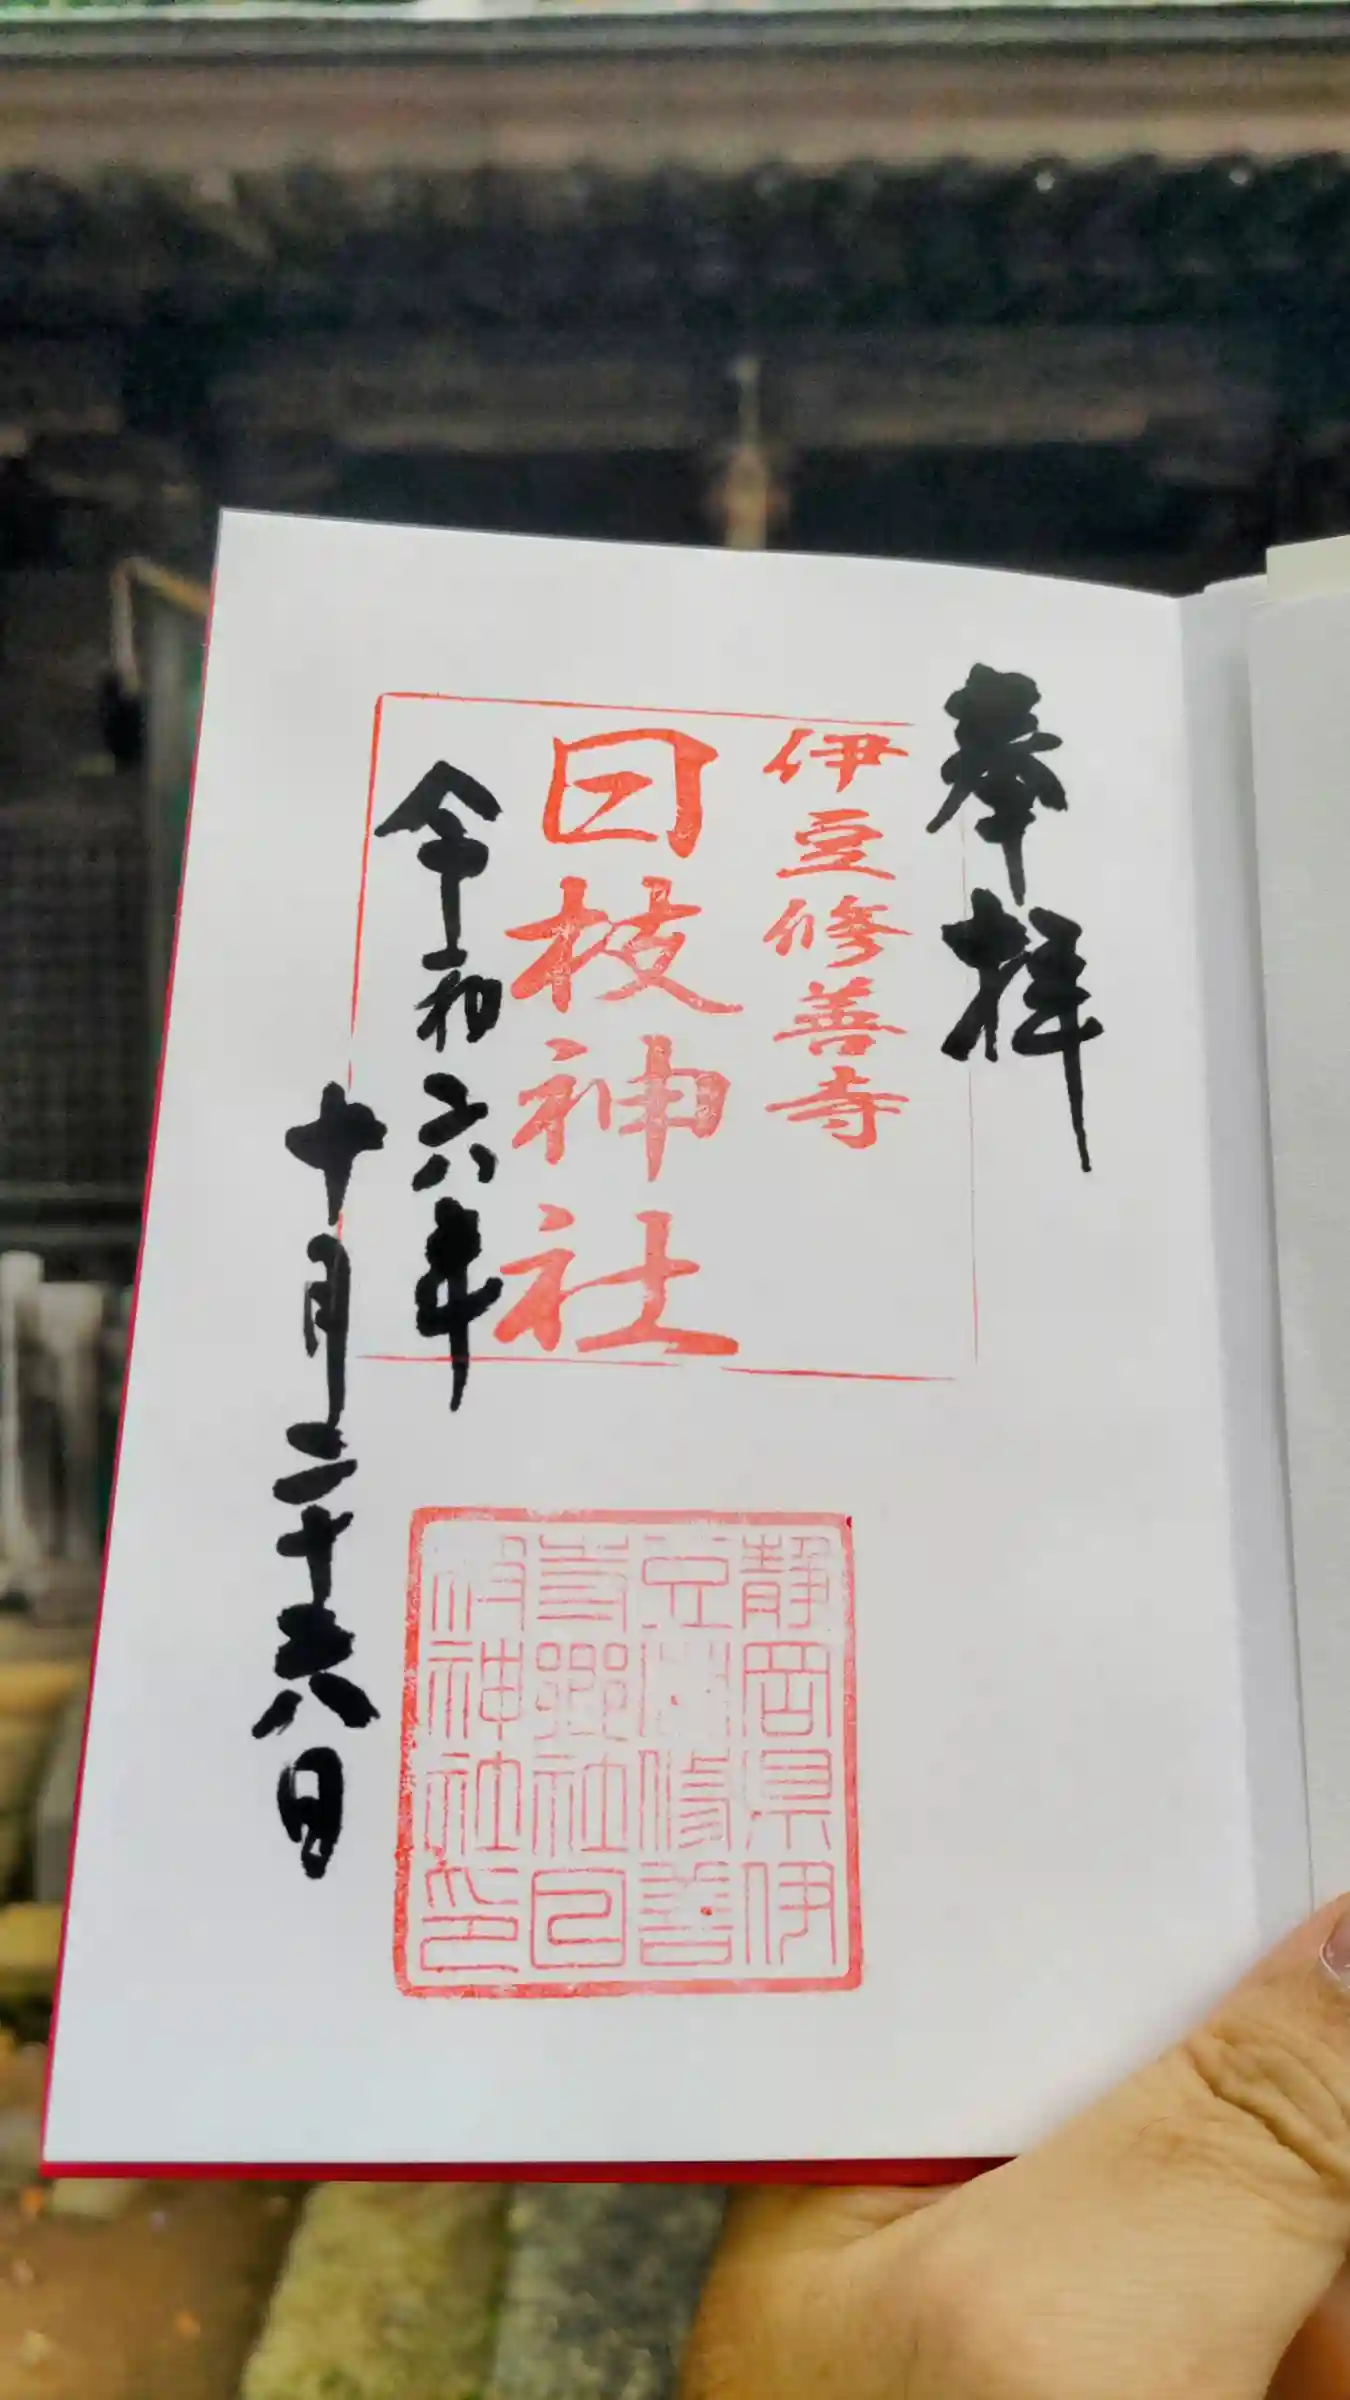 奉拝
伊豆修善寺
日枝神社
令和六年
十月二十六日
静岡県伊
豆國修善
寺郷社日
枝神社印